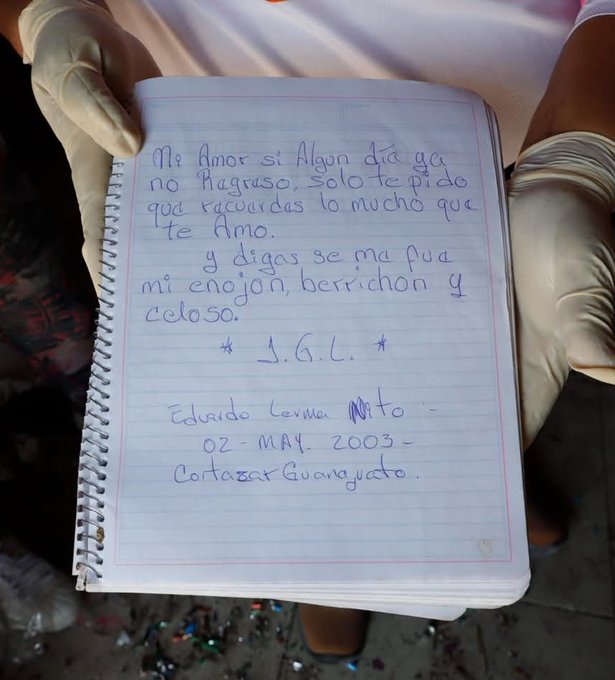 Mi Amor si Algon día ya
no Ragraso, solo te pido
qua racuardas lo mucho que
te Amo.
y digas se ma fua
mi enojon, berrichon y
celoso.
* J.G.L. *
Eduardo Lerma Nito -
02 - MAY. 2003 -
Cortazar Guanajuato.